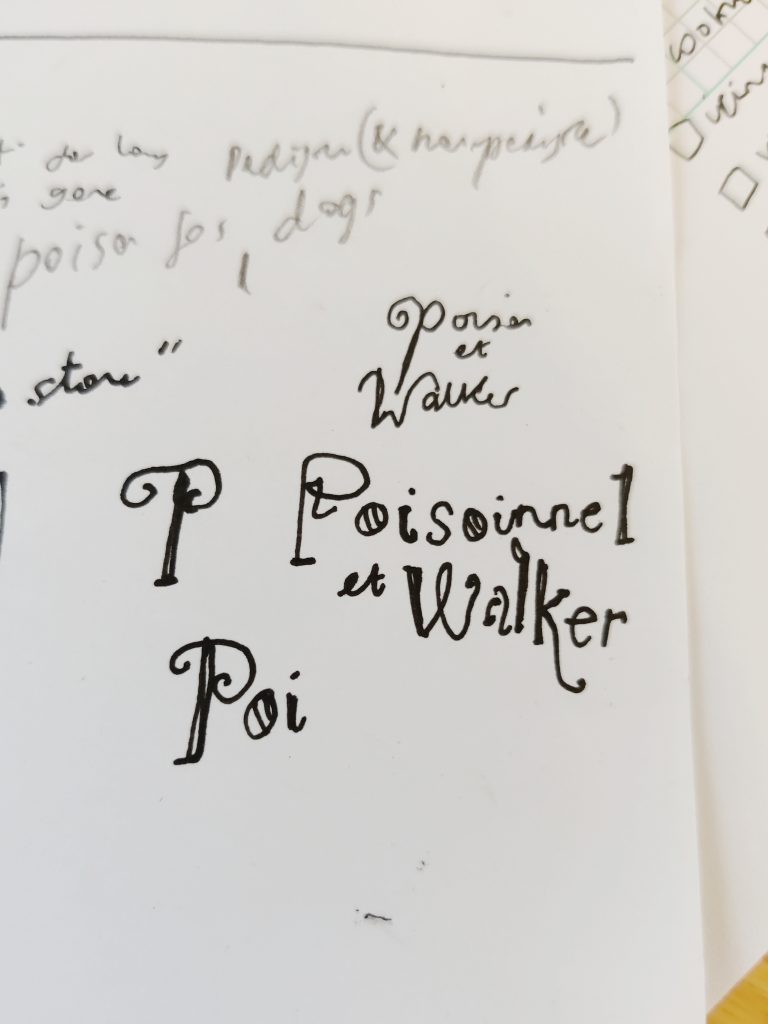 for long
gone
Pedigree (& non-pedigree)
poison for dogs
store"
Poison
et
Walker
P Poisoinnel
et Walker
Poi